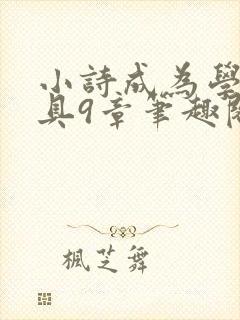 小詩成為學
具9章筆趣閣
楓芝舞